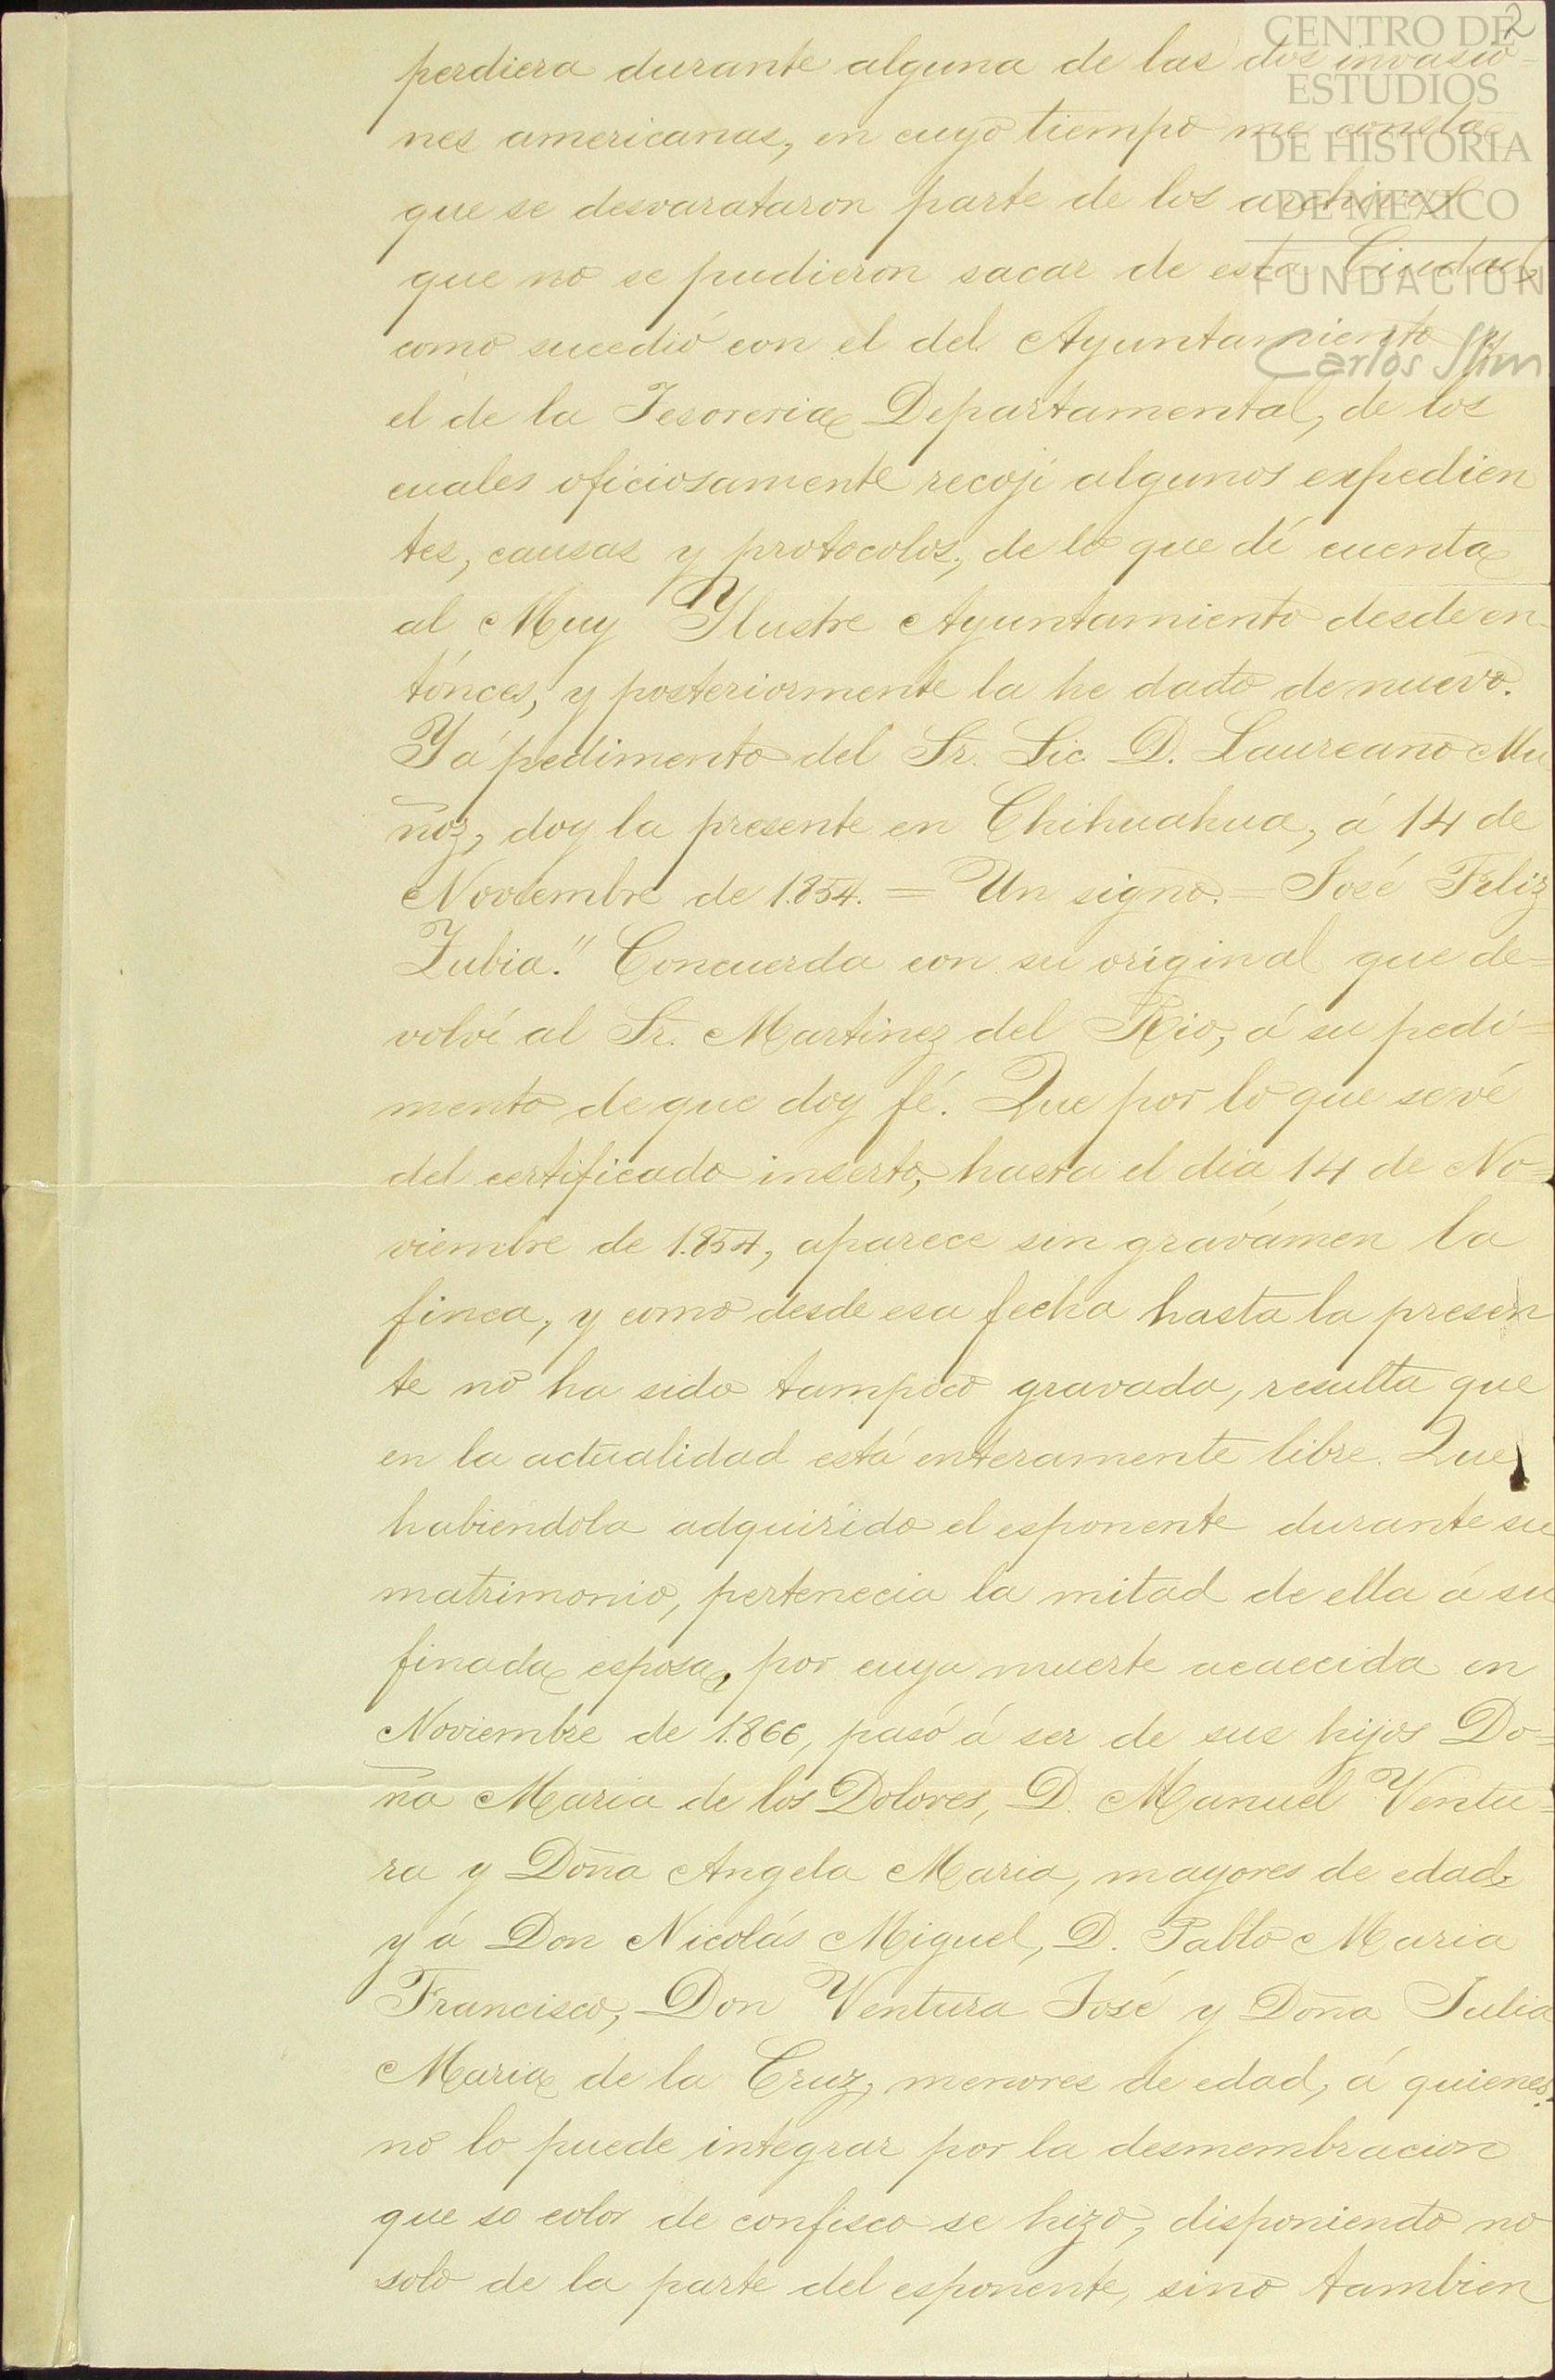 2
CENTRO DE
ESTUDIOS
DE HISTORIA
DE MEXICO
FUNDACION
Carlos Slim
perdiera durante alguna de las dos invasio-
nes americanas, en cuyo tiempo me consta
que se desvarataron parte de los archivos
que no se pudieron sacar de esta Ciudad,
como sucedió con el del Ayuntamiento y
el de la Tesoreria Departamental, de los
cuales oficiosamente recojí algunos expedien
tes, causas y protocolos, de lo que dí cuenta
al Muy Ylustre Ayuntamiento desde en-
tónces, y posteriormente la he dado de nuevo.
Y á pedimento del Sr. Lic. D. Laureano Mu
ñoz, doy la presente en Chihuahua, á 14 de
Noviembre de 1.854. = Un signo. = José Feliz
Zubia." Concuerda con su original que de=
volví al Sr. Martinez del Rio, á su pedi=
mento de que doy fé. Que por lo que se vé
del certificado inserto, hasta el dia 14 de No=
viembre de 1.854, aparece sin gravámen la
finca, y como desde esa fecha hasta la presen
te no ha sido tampoco gravada, resulta que
en la actualidad está enteramente libre. Que
habiéndola adquirido el esponente durante su
matrimonio, pertenecia la mitad de ella á su
finada esposa, por cuya muerte acaecida en
Noviembre de 1.866, pasó á ser de sus hijos Do=
ña Maria de los Dolores, D. Manuel Ventu=
ra y Doña Angela Maria, mayores de edad
y á Don Nicolás Miguel, D. Pablo Maria
Francisco, Don Ventura José y Doña Julia
Maria de la Cruz, menores de edad, á quienes
no lo puede integrar por la desmembracion
que so color de confisco se hizo, disponiendo no
solo de la parte del esponente, sino tambien